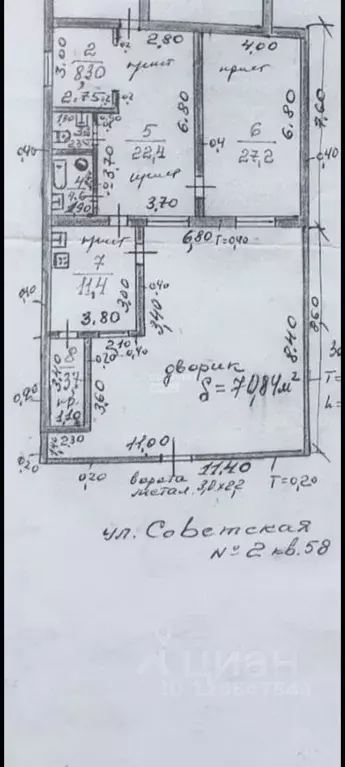 2,80
4,00
3.00
2
8.30
2.75
прист
прист
6.80
6.80
7,60
5
22,1
6
27,2
0,4
0,40
0,40
3.70
3.70
4,6
1.90
6,80
T=0,40
прист
7
11,4
3,00
3,40
0,40
3.80
2,10
0,40
0,20
8
3,7
1,10
3,60
2,30
дворик
S=70,84м²
8.40
8,60
11,00
11.40
0,20
0,20
ворота
метал. 3,0х2,2
T=0,20
ул. Советская
№ 2 кв. 58
циан